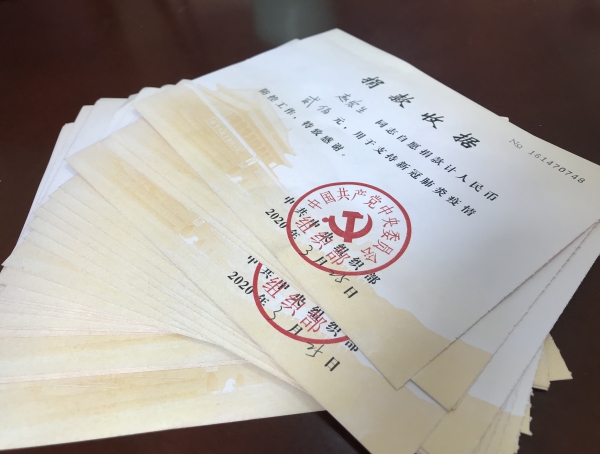 捐款收据
No 161470748
同志自愿捐款计人民币
贰佰元，用于支持新冠肺炎疫情
防控工作，特致感谢。
中国共产党中央委员会
组织部
中共中央组织部
2020年3月25日
组织部
中共中央组织部
2020年3月25日